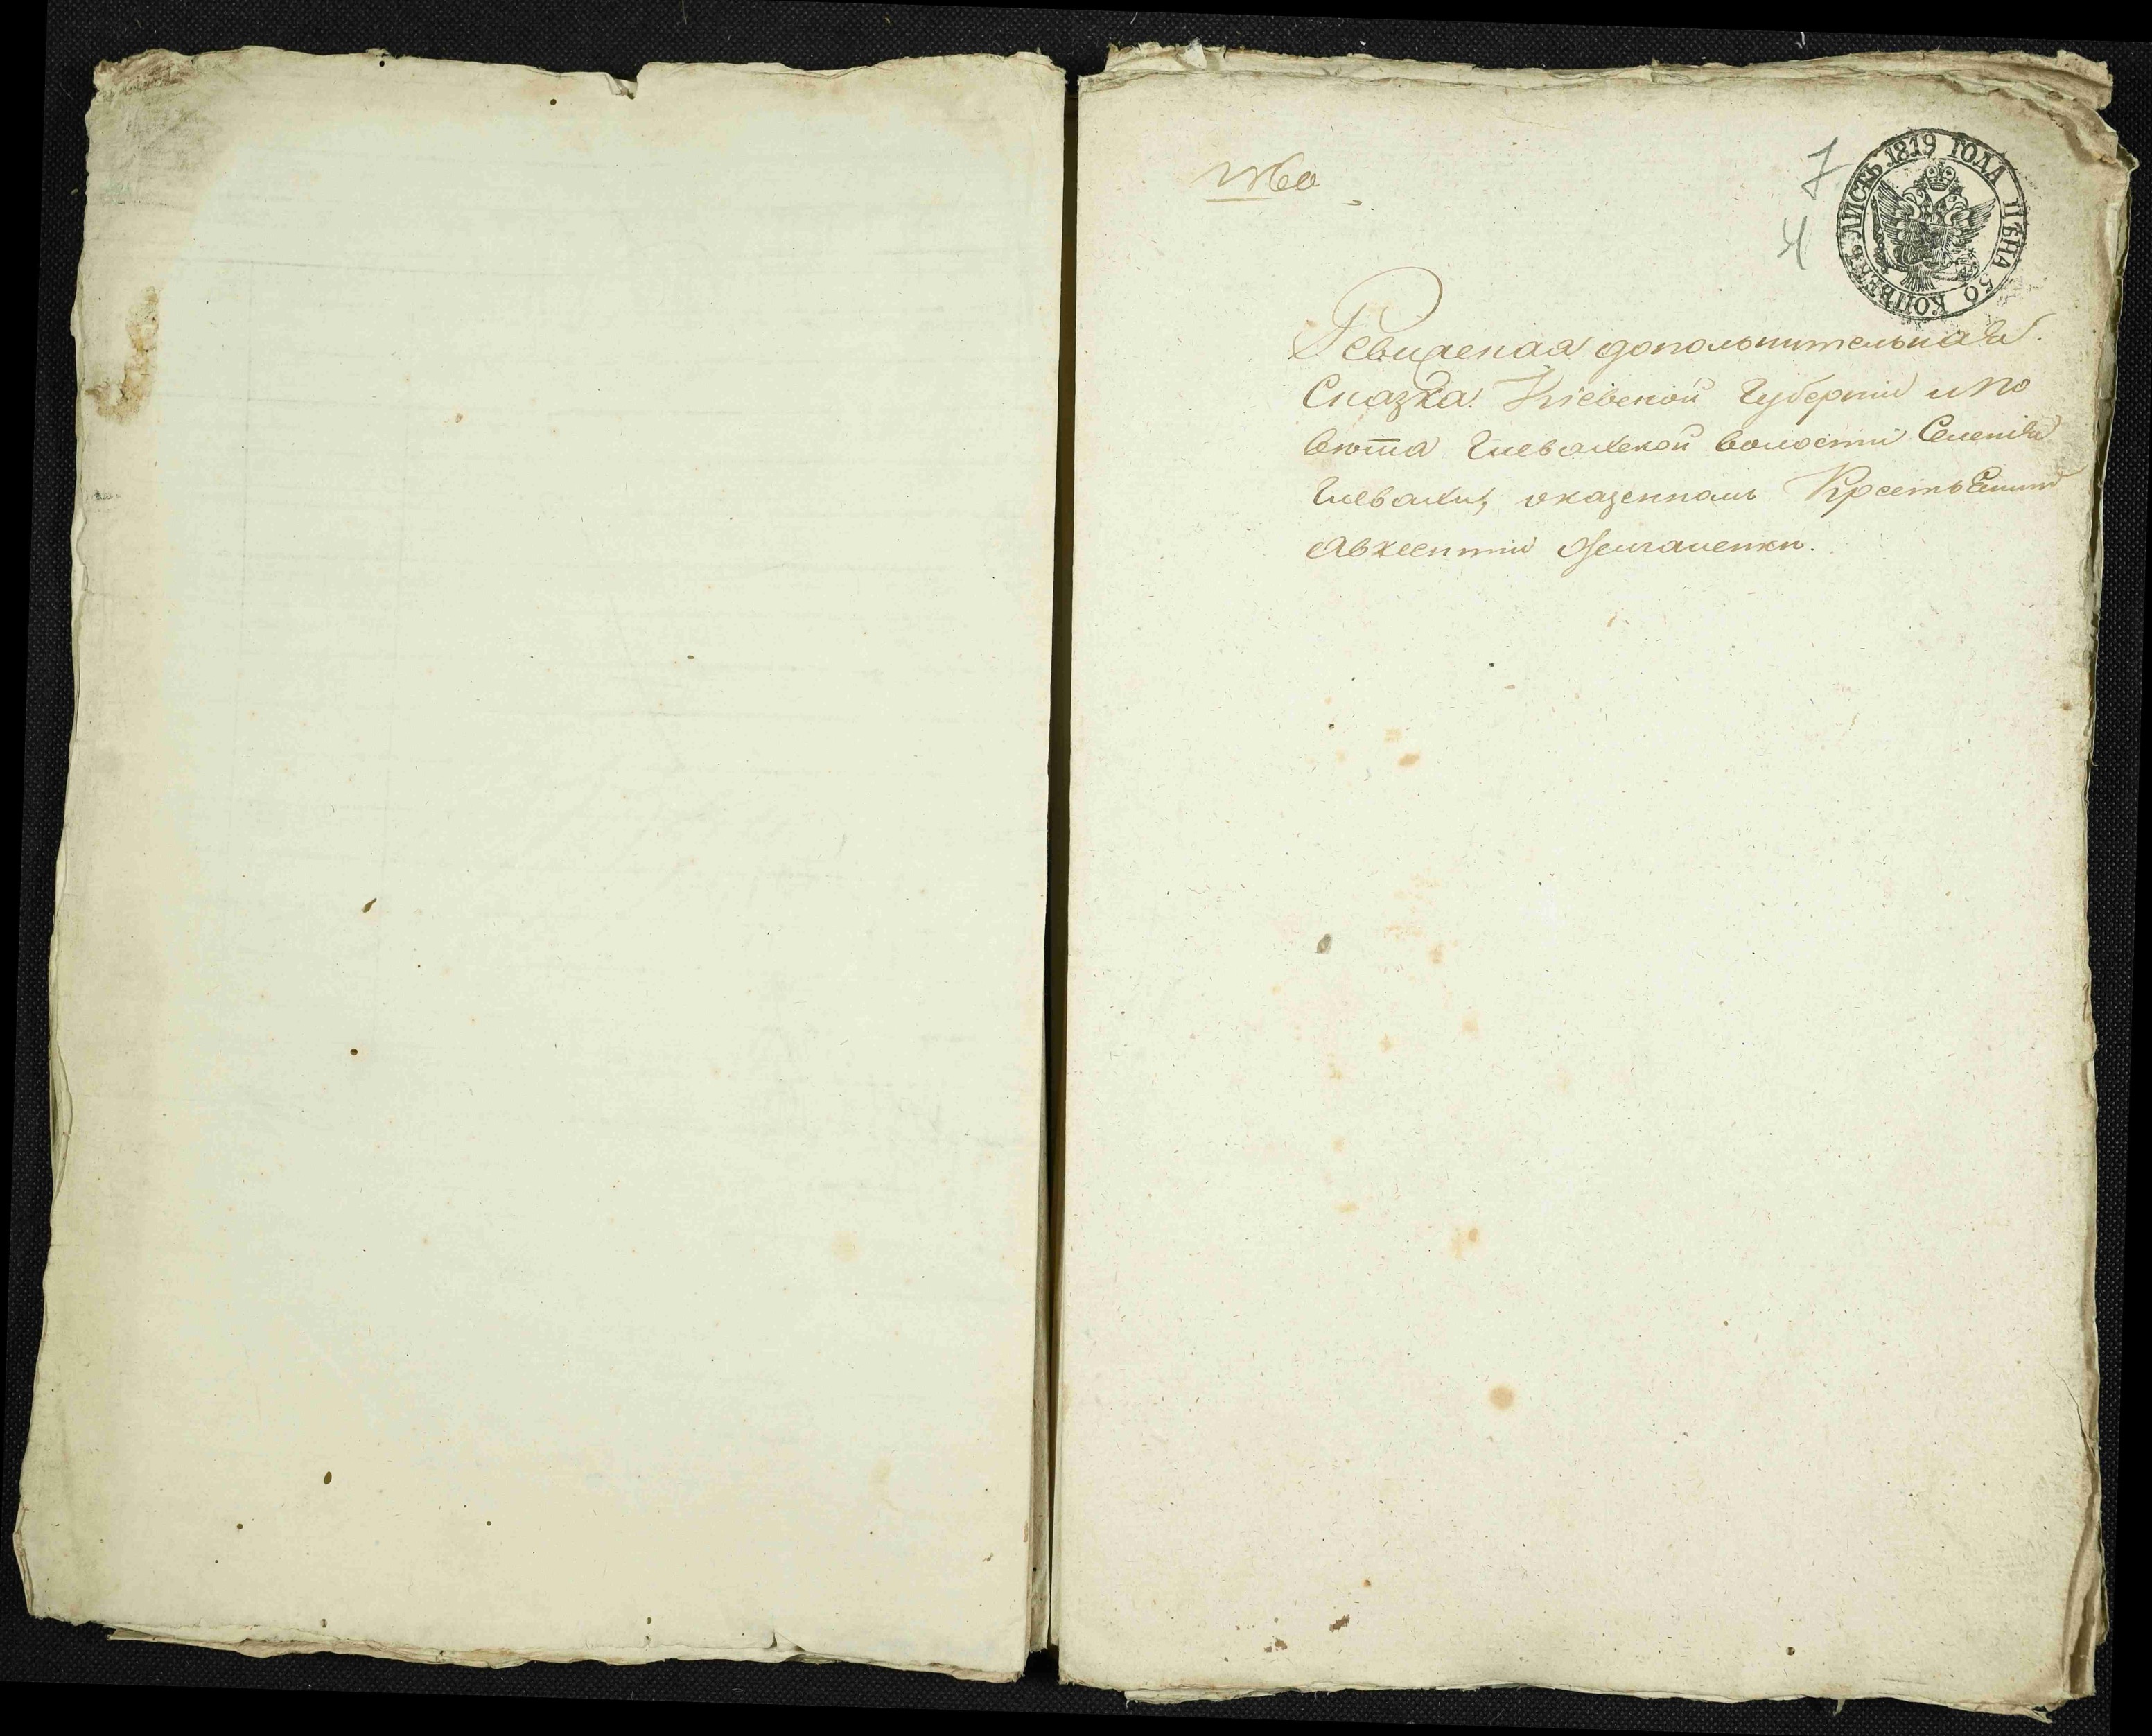 7
4
ЛИСТЪ 1819 ГОДА ЦѢНА 50 КОПѢЕКЪ
Ревизская дополнительная
Сказка. Кіевской Губерніи и по
вѣта Глевахской волости Селенія
Глевахи, оказенномъ Крестьянинѣ
Авксентіи